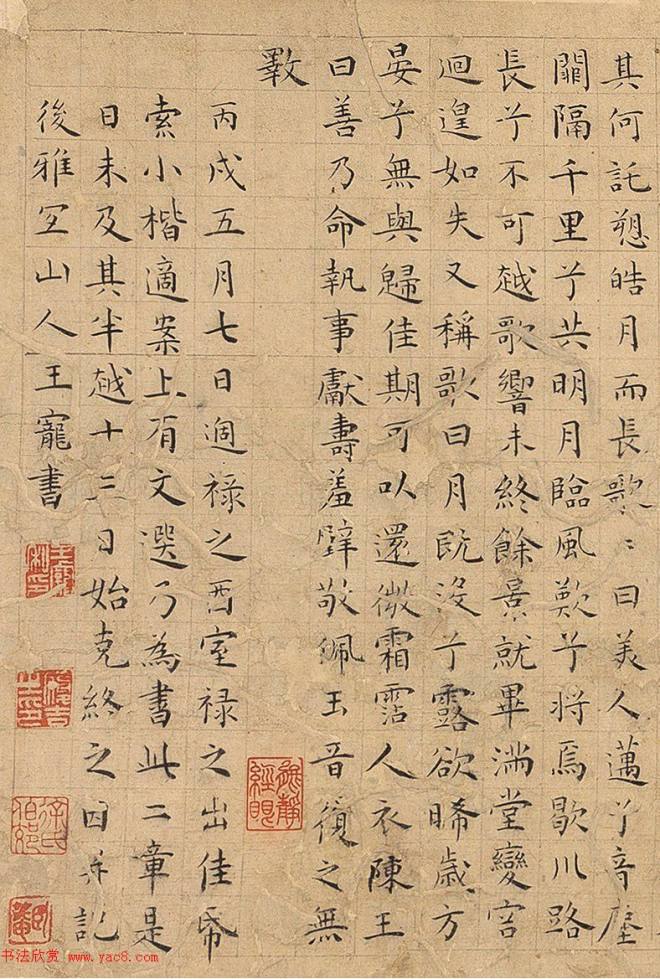 其何託愬皓月而長歌〻曰美人邁兮音塵
闕隔千里兮共明月臨風歎兮将焉歇川路
長兮不可越歌響未終餘景就畢滿堂變容
迴遑如失又稱歌曰月既没兮露欲晞歳方
晏兮無與歸佳期可以還微霜霑人衣陳王
曰善乃命執事獻壽羞璧敬佩玉音復之無
斁
丙戌五月七日過禄之西室禄之出佳帋
索小楷適案上有文選乃為書此二章是
日未及其半越十三日始克終之因并記
後雅宜山人王寵書
無靜
經眼
徐氏
书法欣赏 www.yac8.com